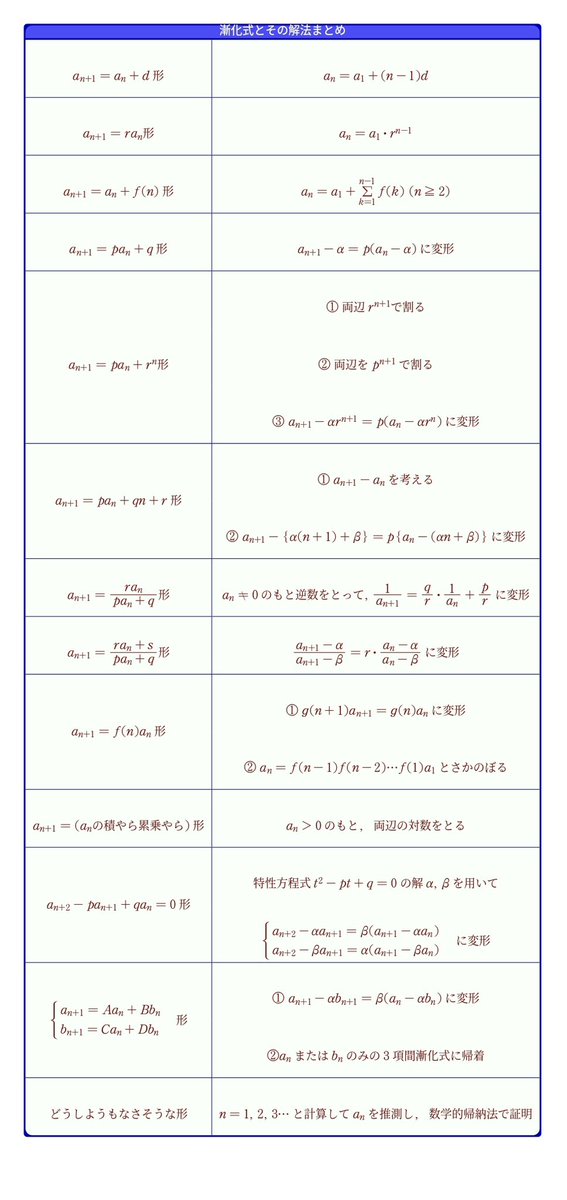 漸化式とその解法まとめ
aₙ₊₁ = aₙ + d 形
aₙ = a₁ + (n − 1)d
aₙ₊₁ = raₙ形
aₙ = a₁・rⁿ⁻¹
aₙ₊₁ = aₙ + f(n) 形
aₙ = a₁ + Σ_{k=1}^{n−1} f(k) (n ≧ 2)
aₙ₊₁ = paₙ + q 形
aₙ₊₁ − α = p(aₙ − α) に変形
aₙ₊₁ = paₙ + rⁿ形
① 両辺 rⁿ⁺¹で割る
② 両辺を pⁿ⁺¹ で割る
③ aₙ₊₁ − αrⁿ⁺¹ = p(aₙ − αrⁿ) に変形
aₙ₊₁ = paₙ + qn + r 形
① aₙ₊₁ − aₙ を考える
② aₙ₊₁ − {α(n + 1) + β} = p{aₙ − (αn + β)} に変形
aₙ₊₁ = raₙ/(paₙ + q) 形
aₙ ≠ 0 のもと逆数をとって, 1/aₙ₊₁ = q/r・1/aₙ + p/r に変形
aₙ₊₁ = (raₙ + s)/(paₙ + q) 形
(aₙ₊₁ − α)/(aₙ₊₁ − β) = r・(aₙ − α)/(aₙ − β) に変形
aₙ₊₁ = f(n)aₙ 形
① g(n + 1)aₙ₊₁ = g(n)aₙ に変形
② aₙ = f(n − 1)f(n − 2)⋯f(1)a₁ とさかのぼる
aₙ₊₁ = (aₙの積やら累乗やら) 形
aₙ > 0 のもと, 両辺の対数をとる
aₙ₊₂ − paₙ₊₁ + qaₙ = 0 形
特性方程式 t² − pt + q = 0 の解 α, β を用いて
{ aₙ₊₂ − αaₙ₊₁ = β(aₙ₊₁ − αaₙ)
aₙ₊₂ − βaₙ₊₁ = α(aₙ₊₁ − βaₙ) に変形
{ aₙ₊₁ = Aaₙ + Bbₙ
bₙ₊₁ = Caₙ + Dbₙ 形
① aₙ₊₁ − αbₙ₊₁ = β(aₙ − αbₙ) に変形
②aₙ または bₙ のみの 3 項間漸化式に帰着
どうしようもなさそうな形
n = 1, 2, 3⋯ と計算して aₙ を推測し, 数学的帰納法で証明